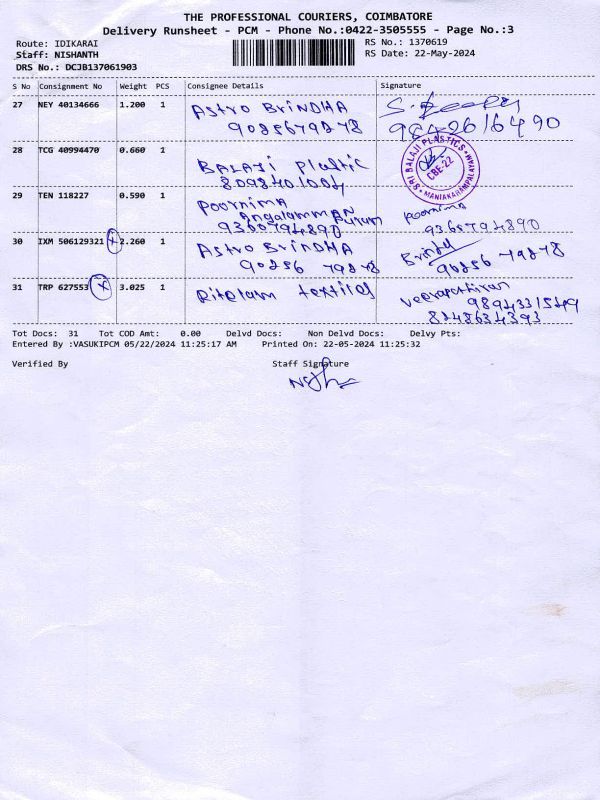 THE PROFESSIONAL COURIERS, COIMBATORE
Delivery Runsheet - PCM - Phone No.:0422-3505555 - Page No.:3
Route: IDIKARAI
RS No.: 1370619
Staff: NISHANTH
RS Date: 22-May-2024
DRS No.: DCJB137061903
S No Consignment No Weight PCS Consignee Details Signature
27 NEY 40134666 1.200 1 Astro BrinDHA
9025679278
9842616490
28 TCG 40994470 0.660 1
BALAJI Plastic
8098401004
SRI BALAJI PLASTICS
CBE-22
MANIAKARAMPALAYAM
29 TEN 118227 0.590 1 Poornima
Angalamman Puram
9360794890
Poornima
9360794890
30 IXM 506129321 x 2.260 1 Astro BrinDHA
90256 79278
Brindha
90256 79278
31 TRP 627553 x 3.025 1 Ritelam textiles
Veerapattiran
9894331549
8248634393
Tot Docs: 31 Tot COD Amt: 0.00 Delvd Docs: Non Delvd Docs: Delvy Pts:
Entered By :VASUKIPCM 05/22/2024 11:25:17 AM Printed On: 22-05-2024 11:25:32
Verified By Staff Signature